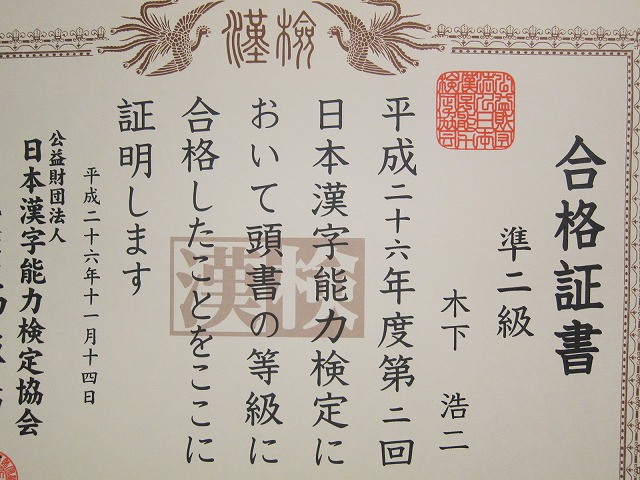 漢検
合格証書
準二級
木下 浩二
平成二十六年度第二回
日本漢字能力検定に
おいて頭書の等級に
合格したことをここに
証明します
漢検
平成二十六年十一月十四日
公益財団法人
日本漢字能力検定協会